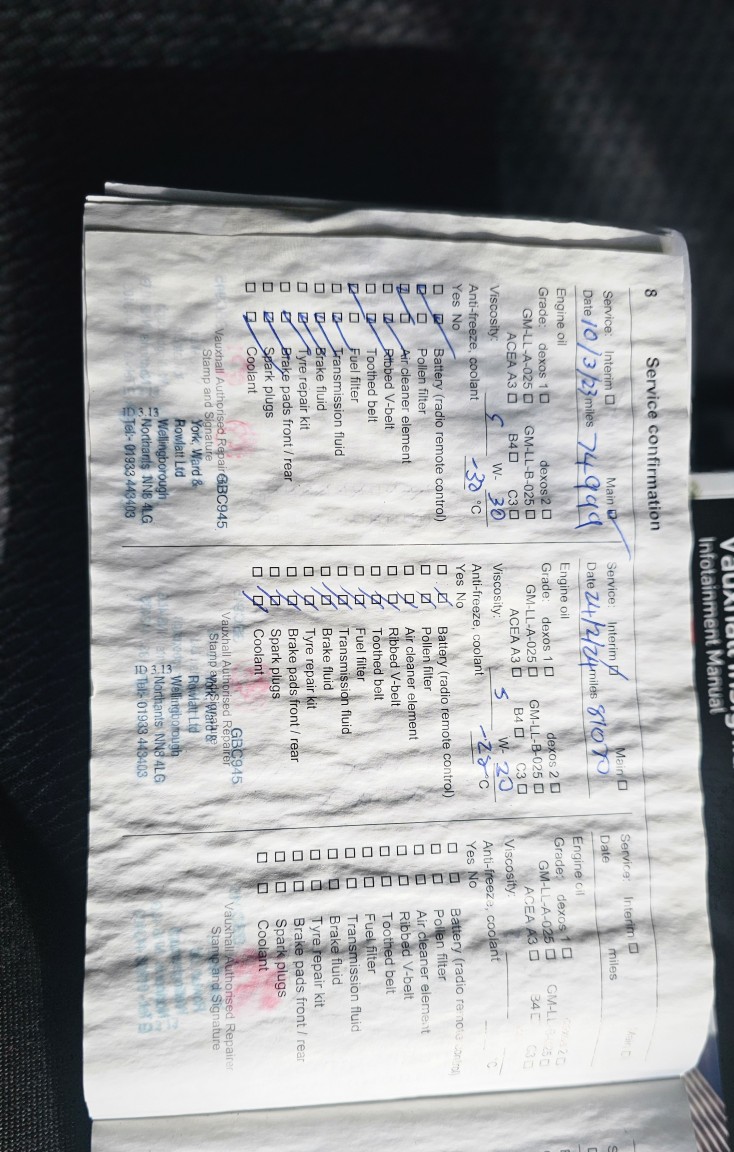 8
Service confirmation
Service: Interim □ Main ☑
Date 10/3/23 miles 74999
Engine oil
Grade: dexos 1 □ dexos 2 □
GM-LL-A-025 □ GM-LL-B-025 □
ACEA A3 □ B4 □ C3 □
Viscosity: 5 W- 30
Anti-freeze, coolant -30 °C
Yes No
Battery (radio remote control)
Pollen filter
Air cleaner element
Ribbed V-belt
Toothed belt
Fuel filter
Transmission fluid
Brake fluid
Tyre repair kit
Brake pads front / rear
Spark plugs
Coolant
Vauxhall Authorised Repairer
Stamp and Signature
GBC945
York Ward &
Rowlatt Ltd
Wellingborough
Northants NN8 4LG
Tel:- 01933 443403
Service: Interim ☑ Main □
Date 24/2/24 miles 81070
Engine oil
Grade: dexos 1 □ dexos 2 □
GM-LL-A-025 □ GM-LL-B-025 □
ACEA A3 □ B4 □ C3 □
Viscosity: 5 W-
Anti-freeze, coolant °C
Yes No
Battery (radio remote control)
Pollen filter
Air cleaner element
Ribbed V-belt
Toothed belt
Fuel filter
Transmission fluid
Brake fluid
Tyre repair kit
Brake pads front / rear
Spark plugs
Coolant
Vauxhall Authorised Repairer
Stamp and Signature
GBC945
York Ward &
Rowlatt Ltd
Wellingborough
Northants NN8 4LG
Tel:- 01933 443403
Service: Interim □
Date miles
Engine oil
Grade: dexos 1 □
GM-LL-A-025 □
ACEA A3 □ B4 □
Viscosity:
Anti-freeze, coolant °C
Yes No
Battery (radio remote control)
Pollen filter
Air cleaner element
Ribbed V-belt
Toothed belt
Fuel filter
Transmission fluid
Brake fluid
Tyre repair kit
Brake pads front / rear
Spark plugs
Coolant
Vauxhall Authorised Repairer
Stamp and Signature
Infotainment Manual